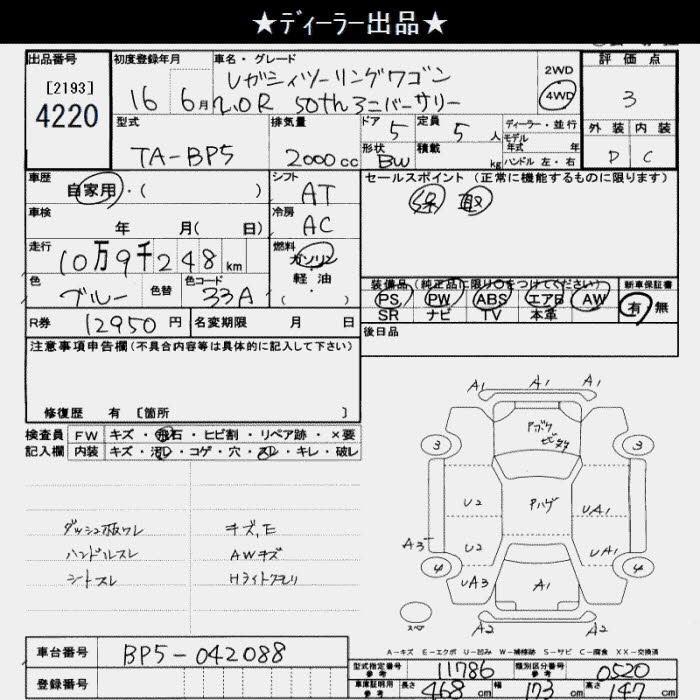 ★ディーラー出品★
出品番号
[2193]
4220
初度登録年月
16 6月
車名・グレード
レガシィツーリングワゴン
2.0R 50thアニバーサリー
2WD
4WD
評価点
3
外装 内装
D C
型式
TA-BP5
排気量
2000cc
ドア 5
定員 5人
形状 BW
積載 kg
ディーラー・並行
モデル年式 年
ハンドル 左・右
車歴
自家用・( )
シフト
AT
セールスポイント(正常に機能するものに限ります)
車検
年 月( 日)
冷房
AC
走行
10万9千248km
燃料
ガソリン・
軽油
( ・ )
色
ブルー
色替
色コード
33A
装備品(純正品に限り○をつけてください)
PS PW ABS エアB AW
SR ナビ TV 本革
新車保証書
有 無
R券 12950円
名変期限 月 日
後日品
注意事項申告欄(不具合内容等は具体的に記入して下さい)
修復歴 有 [箇所 ]
検査員
記入欄
FW キズ・飛石・ヒビ割・リペア跡・×要
内装 キズ・汚レ・コゲ・穴・スレ・キレ・破レ
ダッシュ板ワレ
ハンドルスレ
シートスレ
キズ,E
AWキズ
Hライトクモリ
A1 A1 A1
3 3
U2 アハゲ UA1
A3 U2 UA1
4 UA3 A1 4
スペア
A2 A2
A-キズ E-エクボ U-凹み W-補修跡 S-サビ C-腐食 XX-交換済
車台番号
BP5-042088
登録番号
型式指定番号
参考
11786
類別区分番号
参考
0520
車庫証明用
参考
長さ 468cm
幅 173cm
高さ 147cm